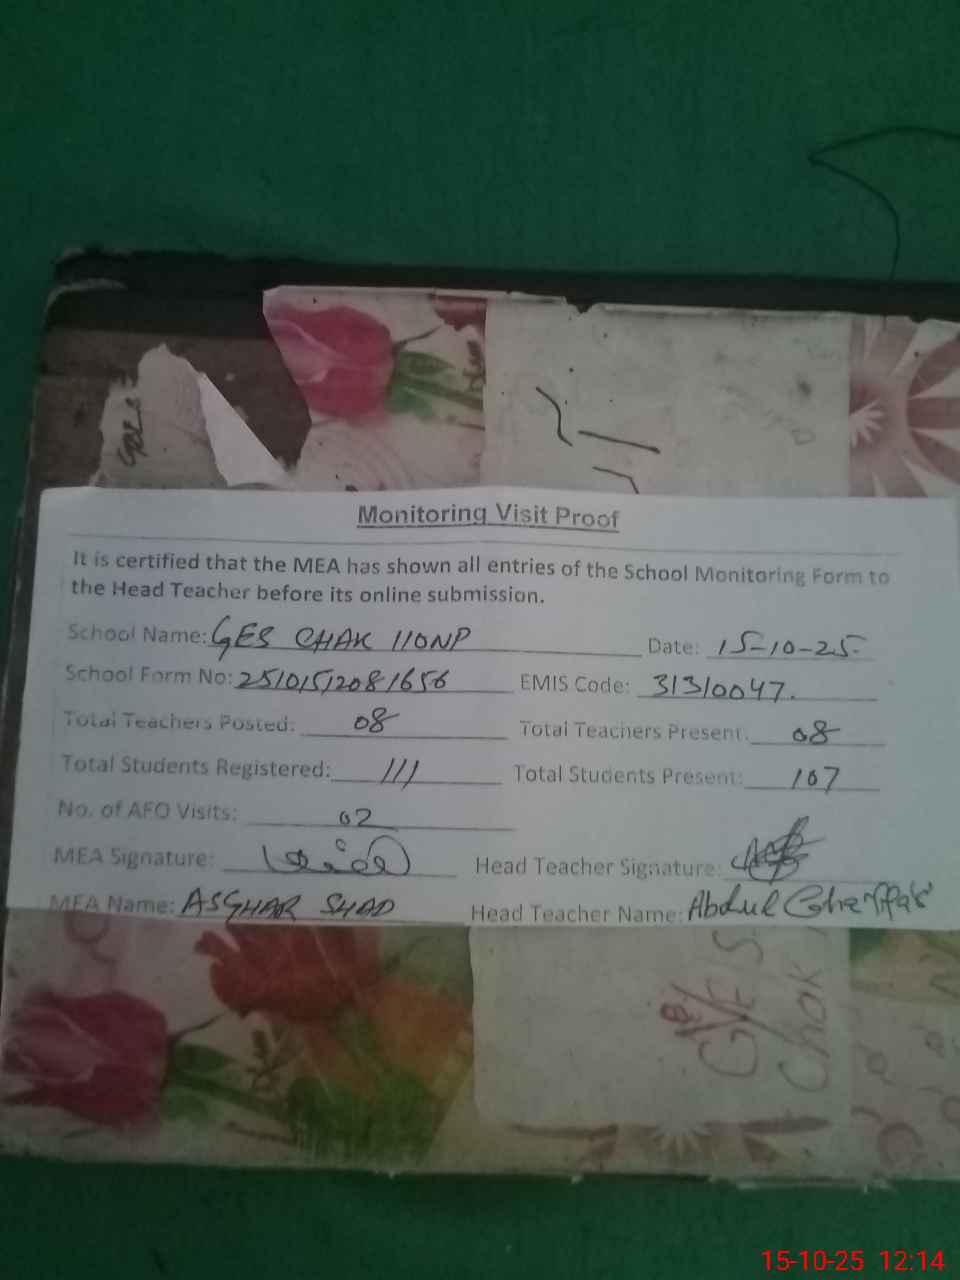 Monitoring Visit Proof
It is certified that the MEA has shown all entries of the School Monitoring Form to
the Head Teacher before its online submission.
School Name: GES CHAK 110NP Date: 15-10-25.
School Form No: 25101512081656 EMIS Code: 31310047.
Total Teachers Posted: 08 Total Teachers Present: 08
Total Students Registered: 111 Total Students Present: 107
No. of AEO Visits: 02
MEA Signature: Head Teacher Signature:
MEA Name: ASGHAR SHAD Head Teacher Name: Abdul Ghaffar
Chak
15-10-25 12:14